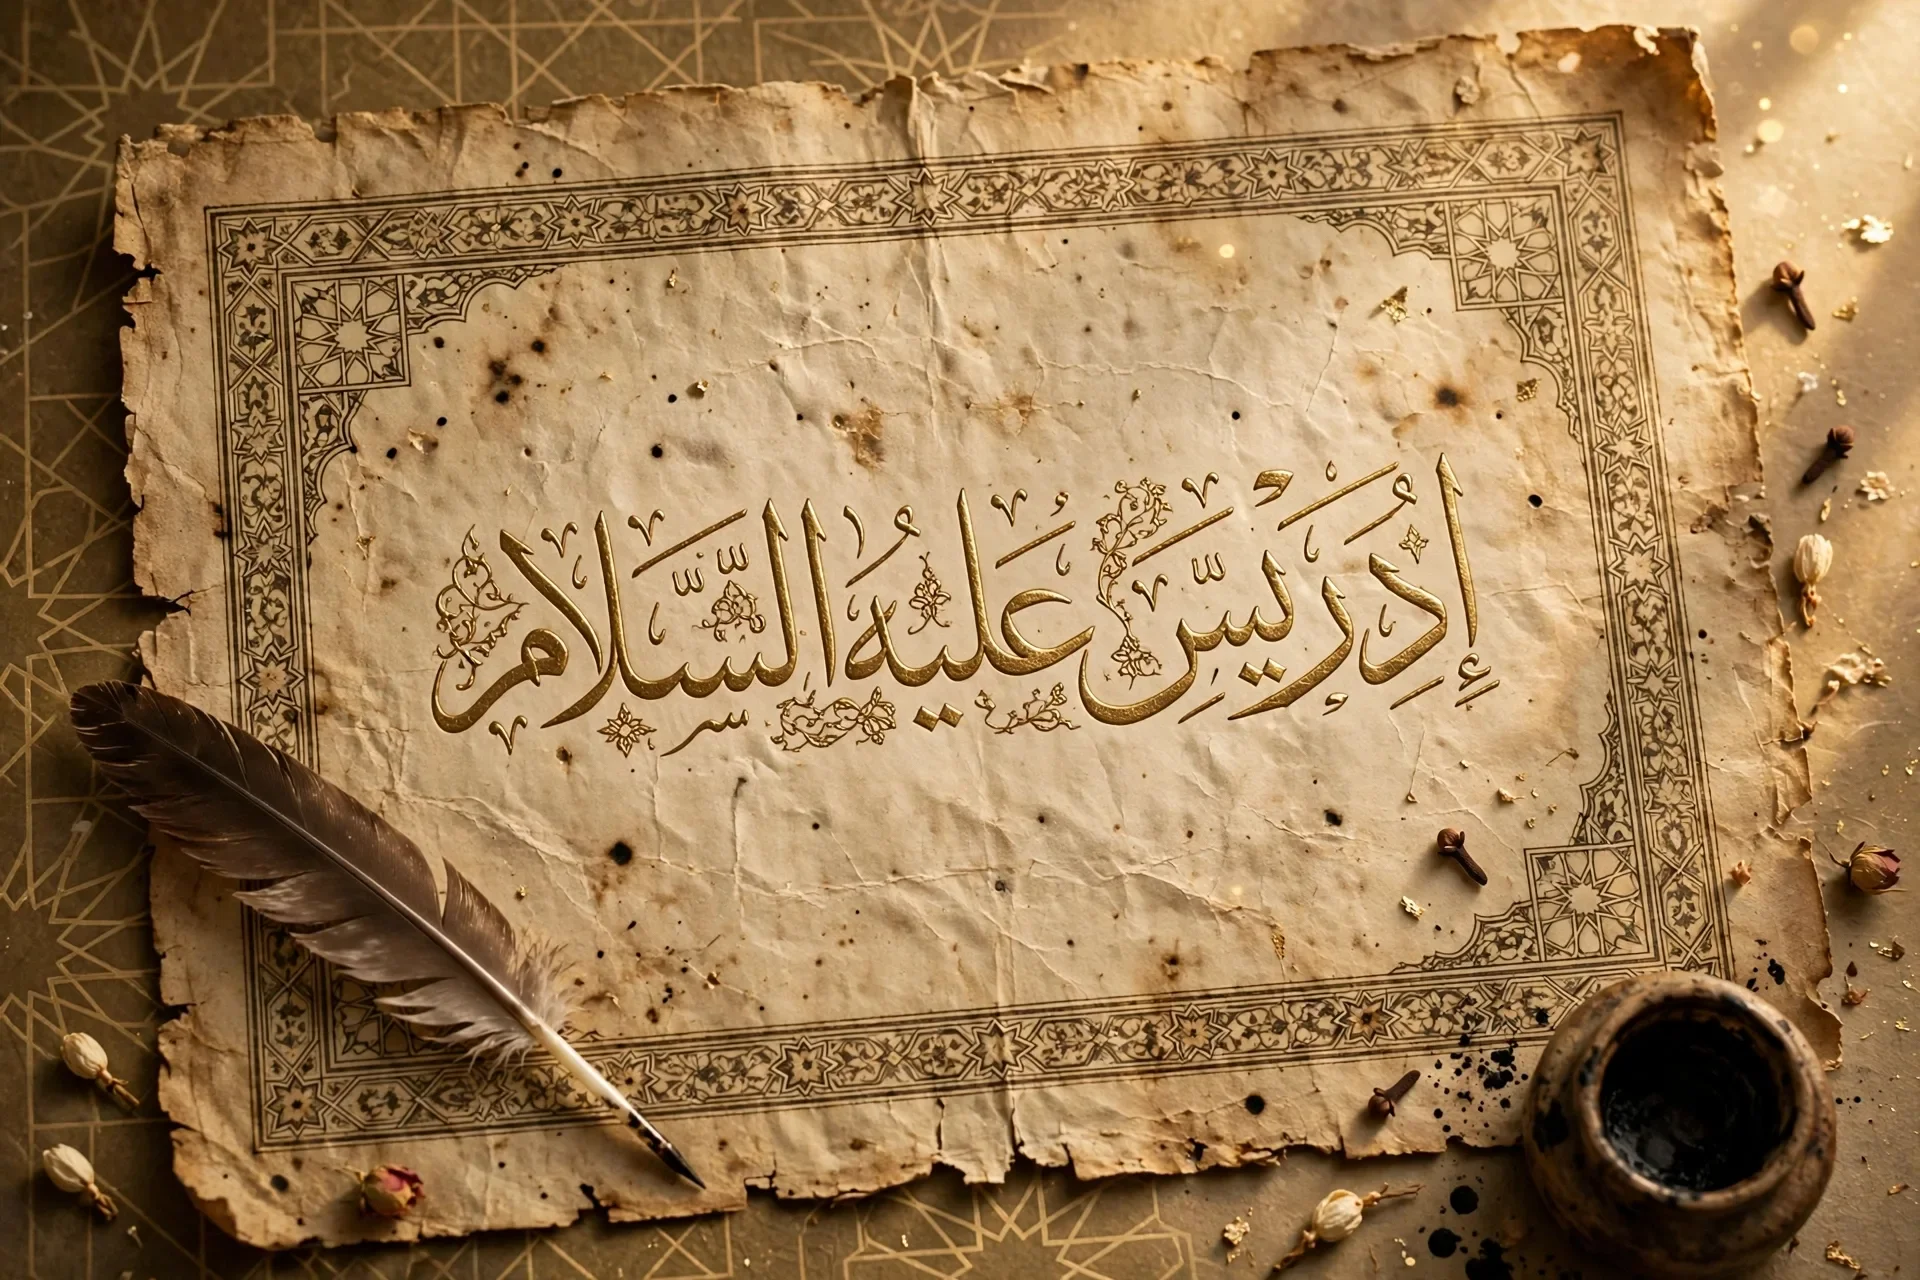 إدريس عليه السلام